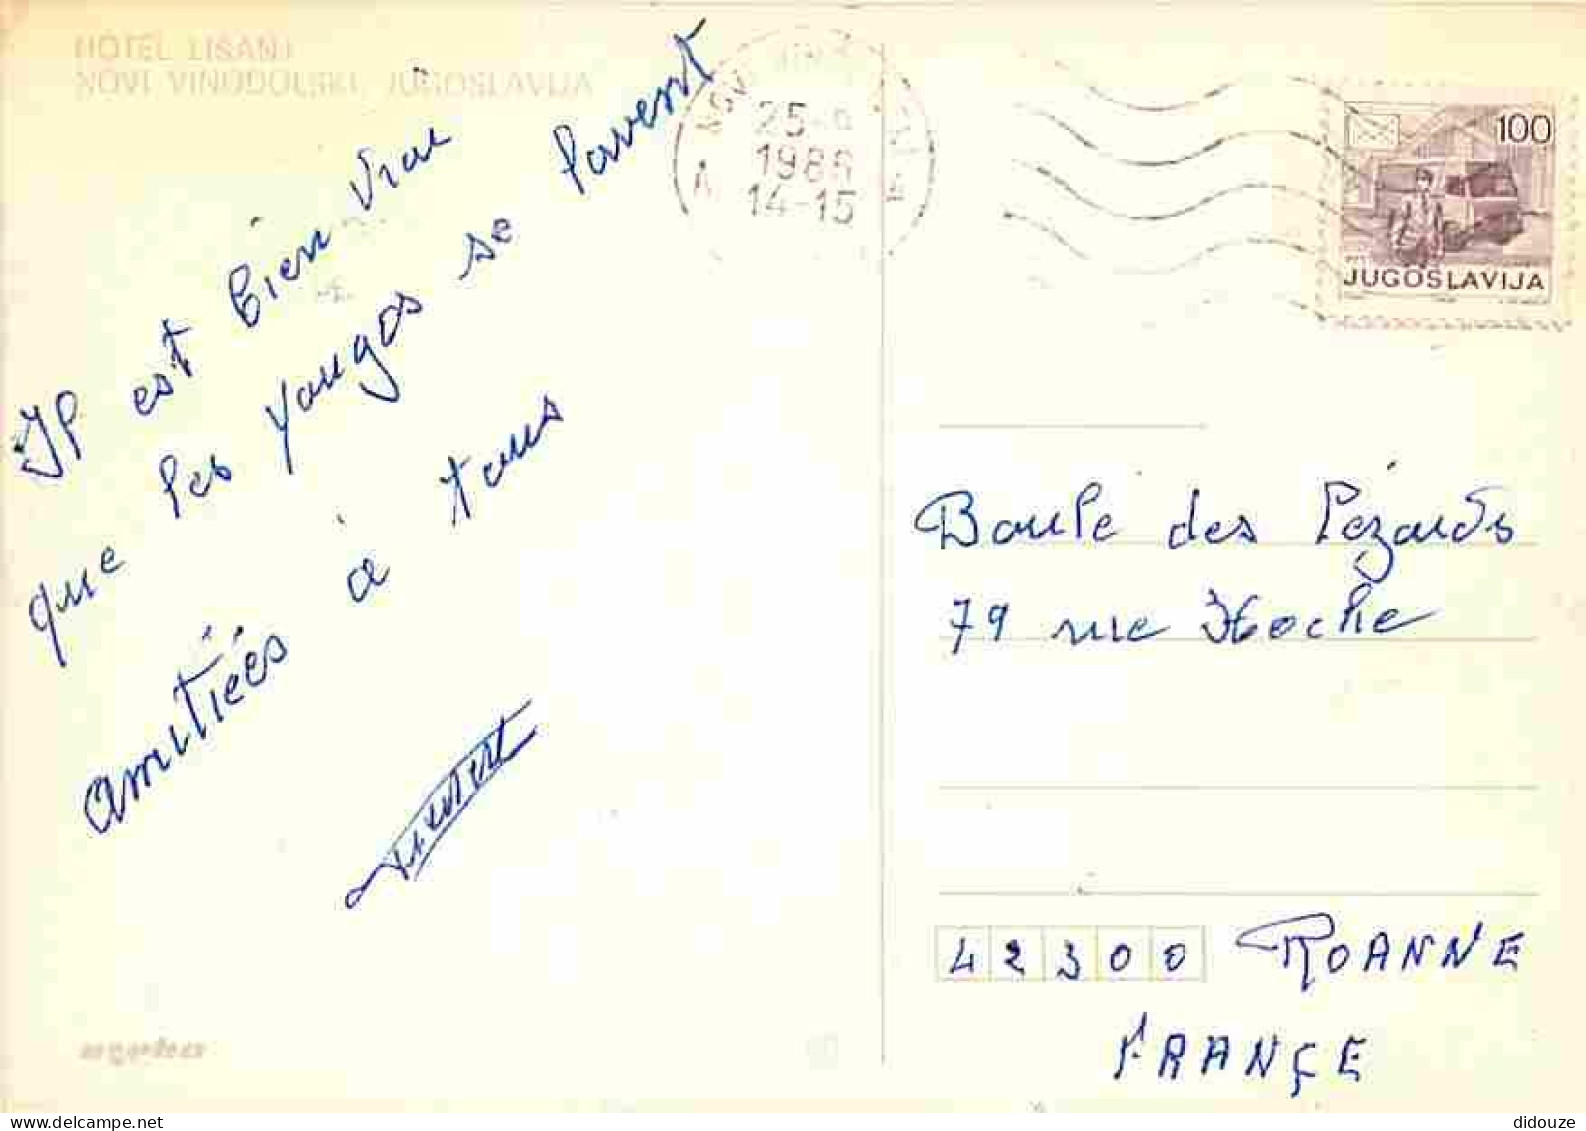 HOTEL LISANJ
NOVI VINODOLSKI, JUGOSLAVIJA
Il est bien vrai
que les Yougos se lavent
amitiés à tous
25-
1986
14-15
100
JUGOSLAVIJA
Boule des Lézards
79 rue Hoche
42300 ROANNE
FRANÇE
didouze